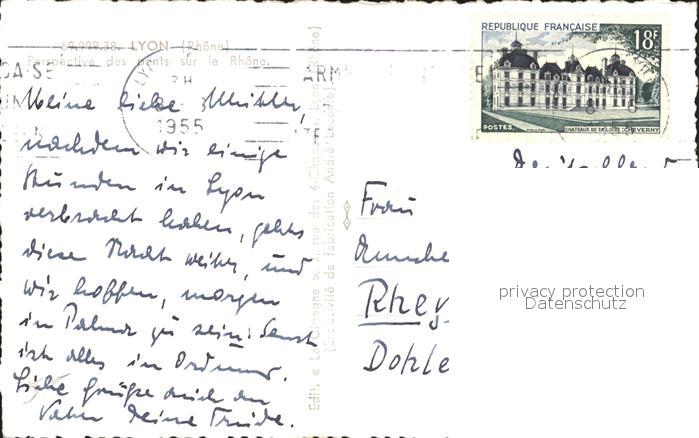 69.999.38. LYON (Rhône)
Perspective des ponts sur le Rhône.
1955
REPUBLIQUE FRANÇAISE
18F
POSTES
CHATEAUX DE LA LOIRE : CHEVERNY
Meine liebe Mutter,
nachdem wir einige
Stunden in Lyon
verbracht haben, gehts
diese Nacht weiter, und
wir hoffen, morgen
in Palma zu sein. Sonst
ist alles in Ordnung.
Liebe Grüße auch an
Vater Deine Trude.
Edit. « La Cigogne », rue des 4-Chapeaux, Lyon (Rhône)
(Exclusivité de fabrication André Leconte)
Frau
Rhey
Dohle
privacy protection
Datenschutz